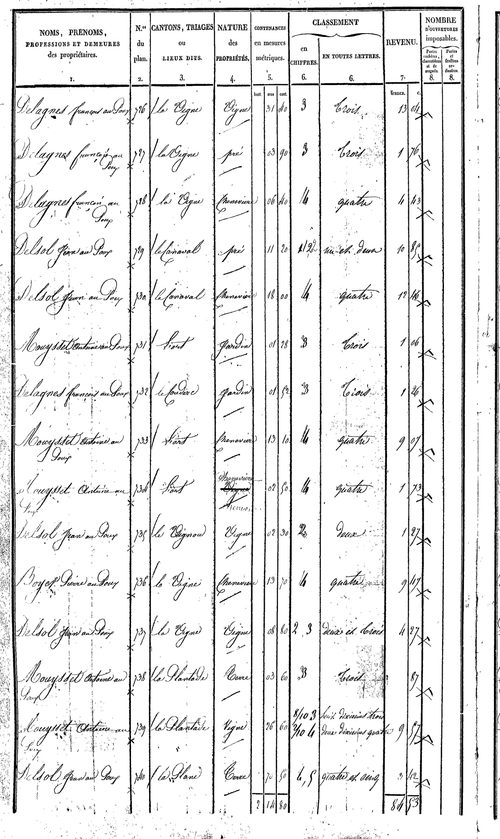 NOMS, PRÉNOMS, PROFESSIONS ET DEMEURES des propriétaires. N.os du plan. CANTONS, TRIAGES ou LIEUX DITS. NATURE des PROPRIÉTÉS. CONTENANCES en mesures métriques. CLASSEMENT EN CHIFFRES. EN TOUTES LETTRES. REVENU. NOMBRE D'OUVERTURES imposables.
1. 2. 3. 4. 5. 6. 6. 7. 8. 8.
Delagnes françois au Poux 726 la Vigne Vigne 31 40 3 trois 13 04
Delagnes françois au Poux 727 la Vigne pré 03 90 3 trois 1 76
Delagnes françois au Poux 728 la Vigne Cheneviere 06 40 4 quatre 4 43
Delsol Jean au Poux 729 le Canaval pré 11 20 1 2 un et deux 10
Delsol Jean au Poux 730 le Canaval Cheneviere 18 00 4 quatre 12
Mouysset Antoine au Poux 731 Jardin 01 28 3 trois 1 06
Delagnes françois au Poux 732 le Couderc Jardin 01 52 3 trois 1 26
Mouysset Antoine au Poux 733 Cheneviere 13 10 4 quatre 9 07
Mouysset Antoine au Poux 734 02 50 4 quatre 1 73
Delsol Jean au Poux 735 le Vignou Vigne 02 30 2 deux 1 27
Pierre au Poux 736 la Vigne Cheneviere 13 70 4 quatre 9 47
Delsol Jean au Poux 737 la Vigne Vigne 08 80 2 3 deux et trois 4 27
Mouysset Antoine au Poux 738 la Plantade Terre 03 60 3 trois 87
Mouysset Antoine au Poux 739 la Plantade Vigne 26 60 8/10 3 huit dixiemes trois
2/10 4 deux dixiemes quatre 9
Delsol Jean au Poux 740 la Plane Terre 70 50 4, 5 quatre et cinq 3 12
2 14 80 84 53